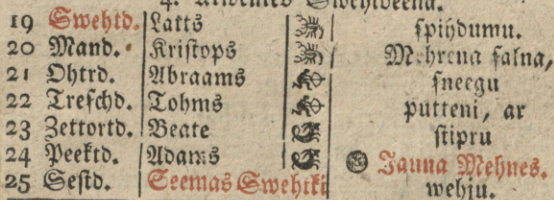 4. Atwentes Swehtdeena.
19 Swehtd. Latts spihdumu.
20 Mand. Kristops Mehrena salna,
21 Ohtrd. Abraams sneegu
22 Treschd. Tohms putteni, ar
23 Zettortd. Beate stipru
24 Peektd. Adams Jauna Mehnes.
25 Sestd. Seemas Swehtki wehju.